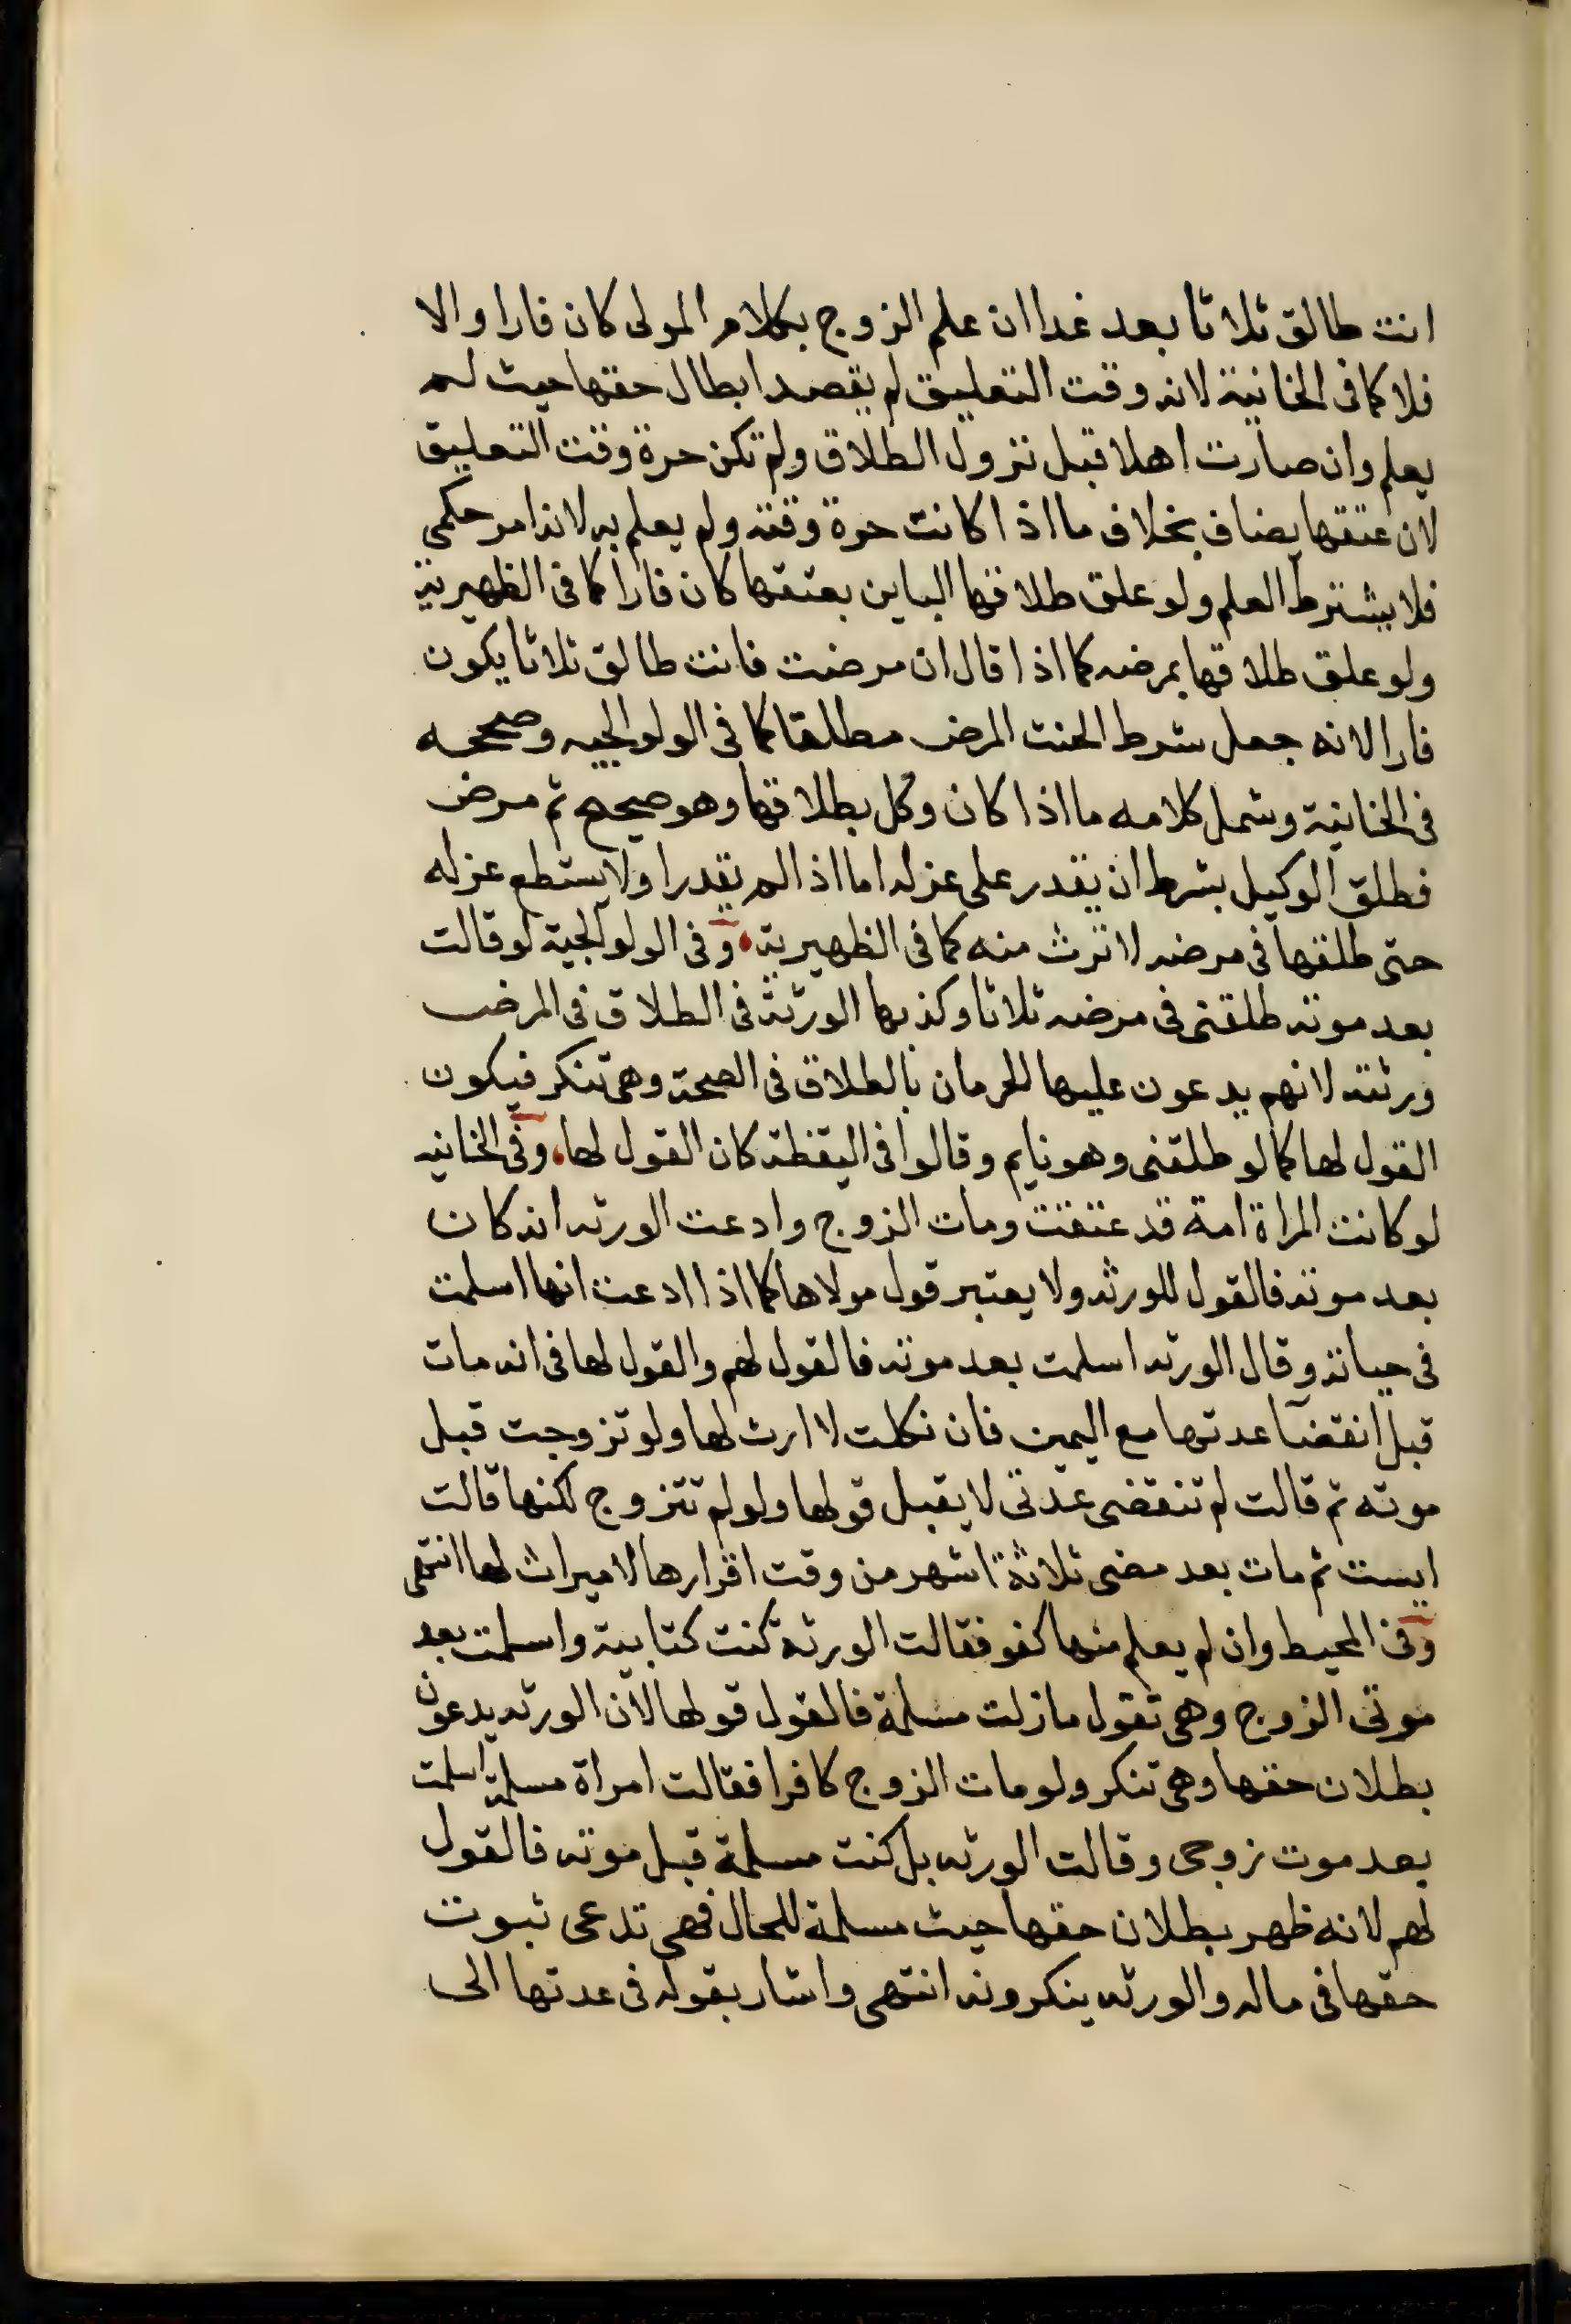 انت طالق ثلاثا بعد غد ان علم الزوج بكلام المولى كان فارا والا
فلا كما فى الخانية لانه وقت التعليق لم يقصد ابطال حقها حيث لم
يعلم وان صارت اهلا قبل نزول الطلاق ولم تكن حرة وقت التعليق
لان عتقها يضاف بخلاف ما اذا كانت حرة وقته ولم يعلم به لانه امر حكمى
فلا يشترط العلم ولو علق طلاقها الباين بعتقها كان فارا كما فى الظهيرية
ولو علق طلاقها بمرضه كما اذا قال ان مرضت فانت طالق ثلاثا يكون
فارا لانه جعل شرط الحنث المرض مطلقا كما فى الولوالجيه وصححه
فى الخانية وشمل كلامه ما اذا كان وكل بطلاقها وهو صحيح ثم مرض
فطلق الوكيل بشرط ان يقدر على عزله اما اذا لم يقدر اولا يستطع عزله
حتى طلقها فى مرضه لا ترث منه كما فى الظهيرية وفى الولوالجية لو قالت
بعد موته طلقنى فى مرضه ثلاثا وكذبها الورثة فى الطلاق فى المرض
ورثته لانهم يدعون عليها الحرمان بالطلاق فى الصحة وهى تنكر فيكون
القول لها كما لو طلقنى وهو نايم وقالوا فى اليقظة كان القول لها وفى الخانيه
لو كانت المراة امة قد عتقت ومات الزوج وادعت الورثه انه كان
بعد موته فالقول للورثه ولا يعتبر قول مولاها كما اذا ادعت انها اسلمت
فى حياته وقال الورثه اسلمت بعد موته فالقول لهم والقول لها فى انه مات
قبل انقضآ عدتها مع اليمين فان نكلت لا ارث لها ولو تزوجت قبل
موته ثم قالت لم تنقضى عدتى لا يقبل قولها ولو لم تتزوج لكنها قالت
ايست ثم مات بعد مضى ثلاثة اشهر من وقت اقرارها لا ميراث لها انتهى
وفى المحيط وان لم يعلم منها كفر فقالت الورثة كنت كتابية واسلمت بعد
موتى الزوج وهى تقول مازلت مسلمة فالقول قولها لان الورثه يدعون
بطلان حقها وهى تنكر ولو مات الزوج كافرا فقالت امراة مسلمة اسلمت
بعد موت زوجى وقالت الورثه بل كنت مسلمة قبل موته فالقول
لهم لانه ظهر بطلان حقها حيث مسلمة للحال فهى تدعى ثبوت
حقها فى ماله والورثه ينكرونه انتهى واشار بقوله فى عدتها الى